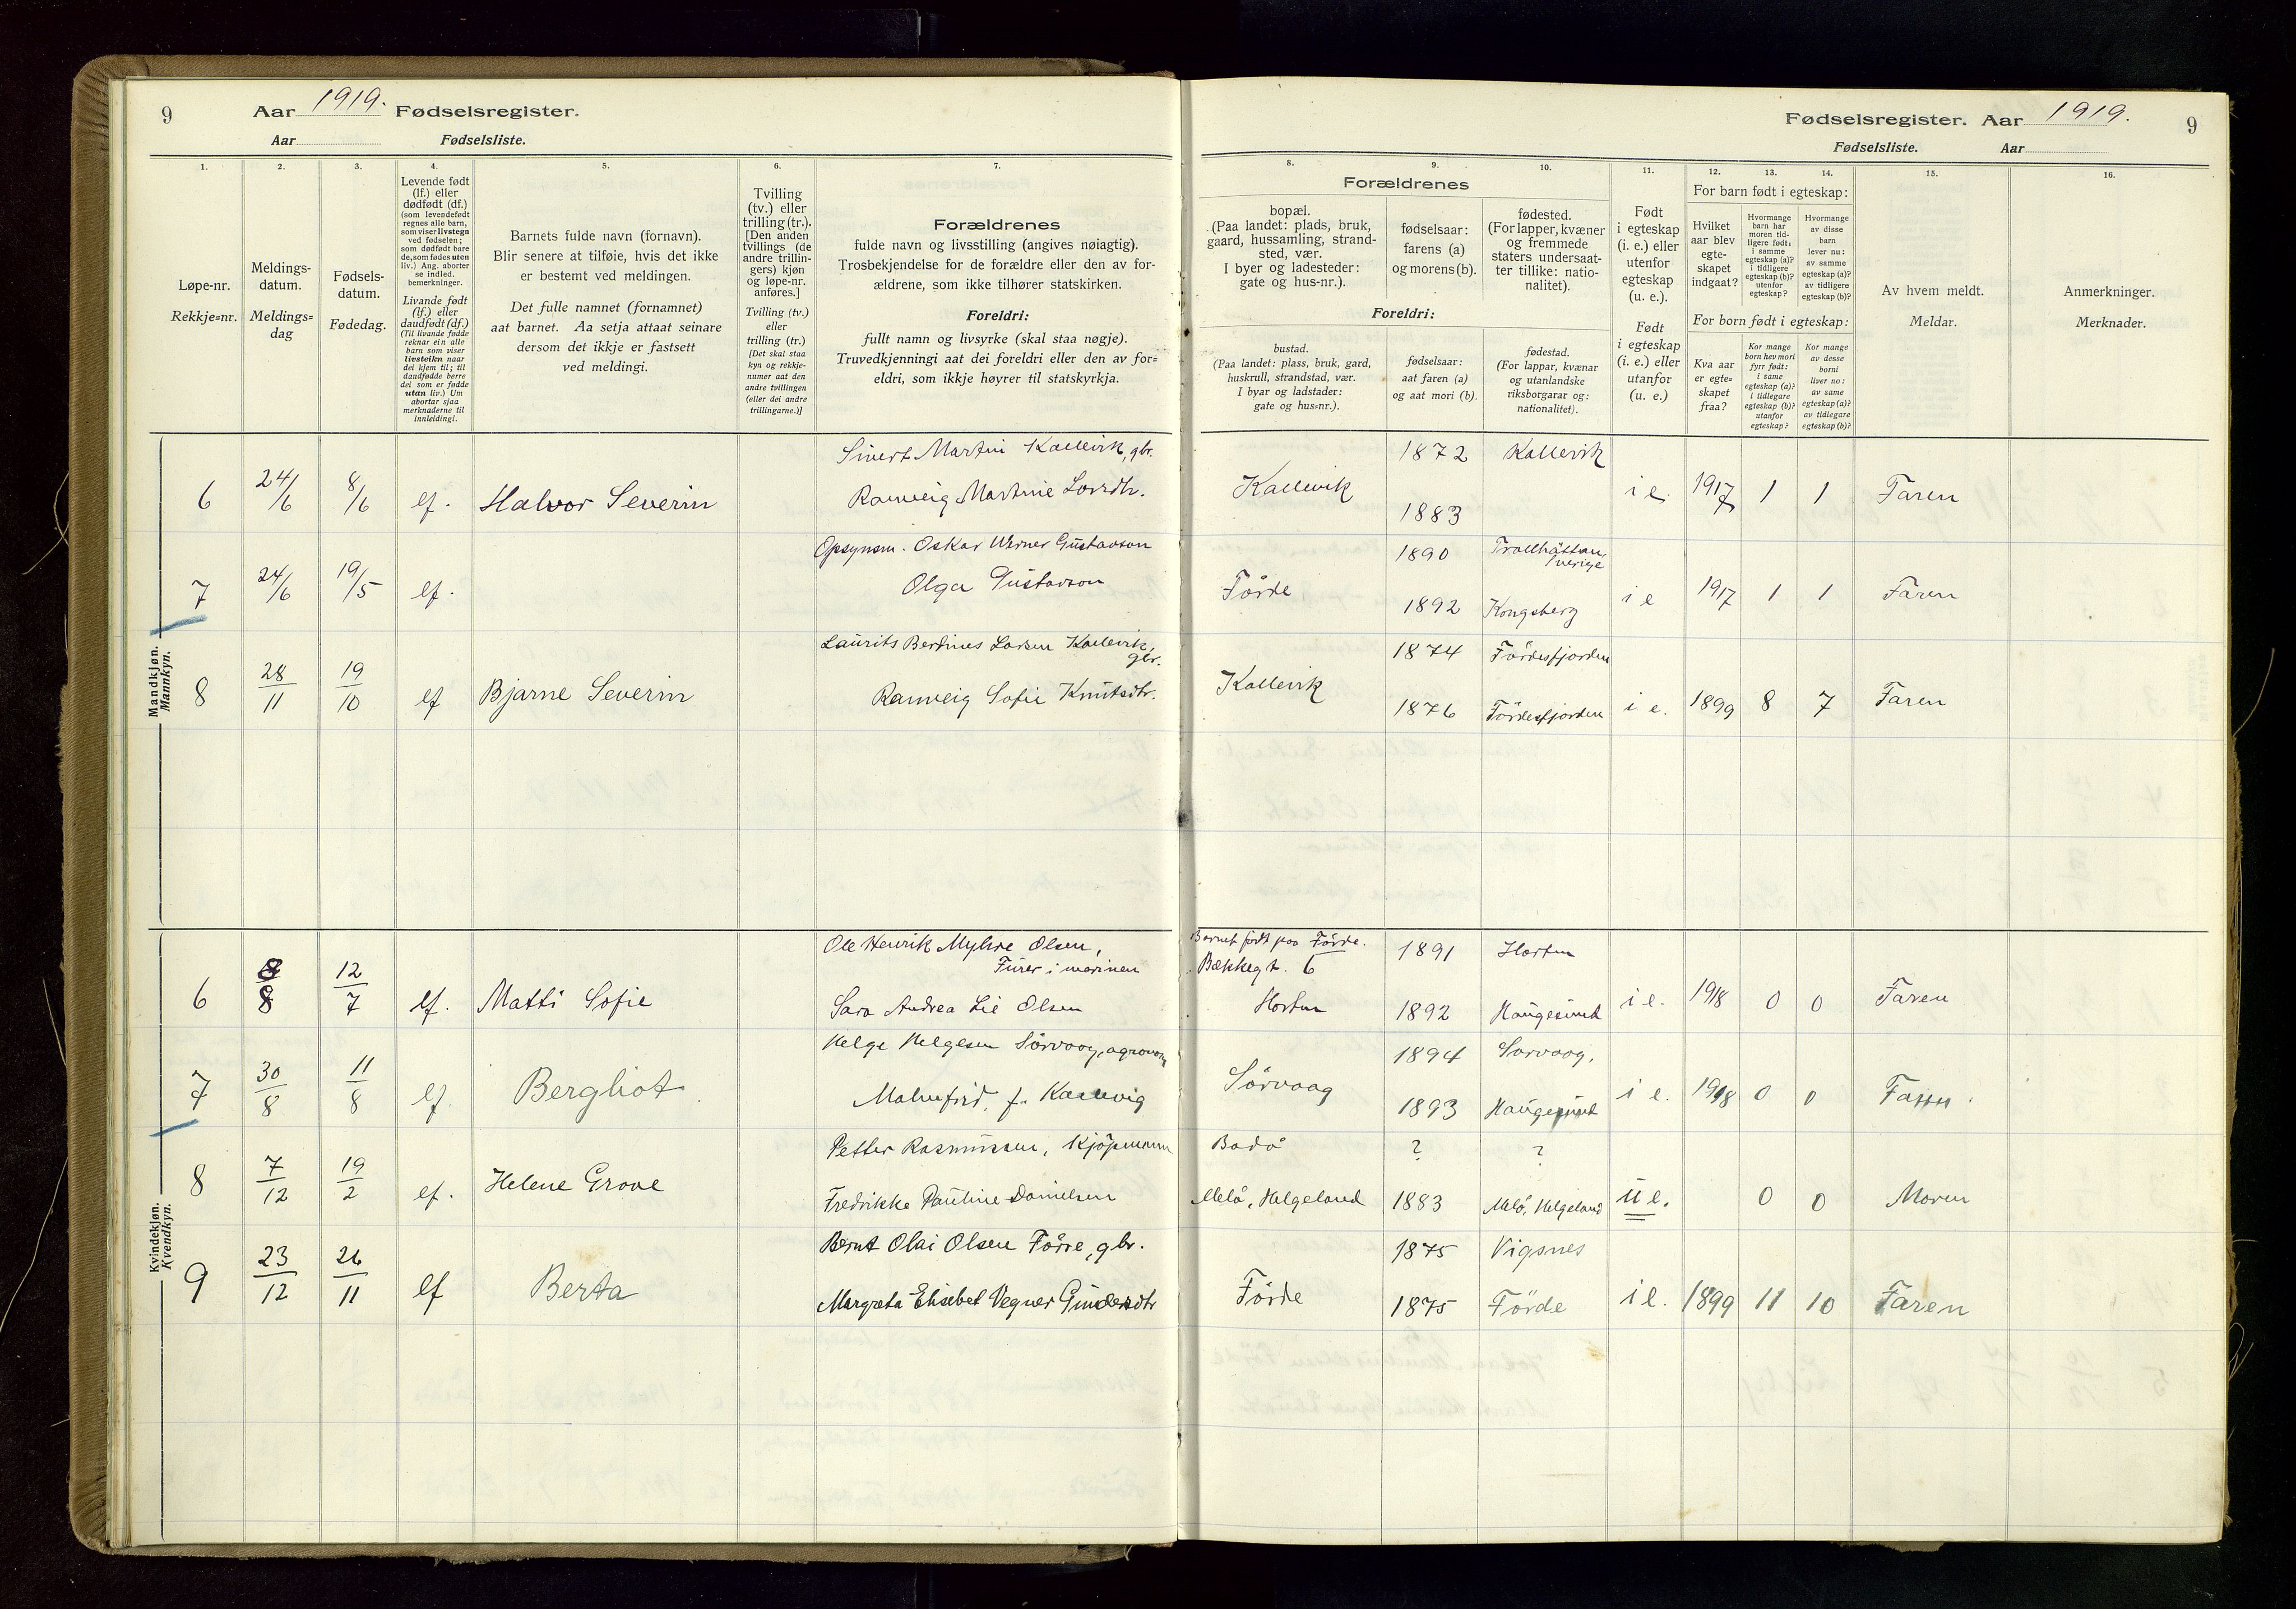 9
Aar 1919. Fødselsregister.
Aar Fødselsliste.
1.
2.
3.
4.
5.
6.
7.
Løpe-nr.
Rekkje=nr.
Meldings-
datum.
Meldings=
dag
Fødsels-
datum.
Fødedag.
Levende født
(lf.) eller
dødfødt (df.)
(som levendefødt
regnes alle barn,
som viser livstegn
ved fødselen;
som dødfødt bare
de, som fødes uten
liv.) Ang. aborter
se indled.
bemerkninger.
Livande født
(lf.) eller
daudfødt (df.)
(Til livande fødde
reknar ein alle
barn som viser
livsteikn naar
dei kjem til; til
daudfødde berre
dei som er fødde
utan liv.) Um
abortar sjaa
merknaderne til
innleidingi.
Barnets fulde navn (fornavn).
Blir senere at tilføie, hvis det ikke
er bestemt ved meldingen.
Det fulle namnet (fornamnet)
aat barnet. Aa setja attaat seinare
dersom det ikkje er fastsett
ved meldingi.
Tvilling
(tv.) eller
trilling (tr.).
[Den anden
tvillings (de
andre trillin-
gers) kjøn
og løpe-nr.
anføres.]
Tvilling (tv.)
eller
trilling (tr.)
[Det skal staa
kyn og rekkje-
numer aat den
andre tvillingen
(eller dei andre
trillingarne.)]
Forældrenes
fulde navn og livsstilling (angives nøiagtig).
Trosbekjendelse for de forældre eller den av for-
ældrene, som ikke tilhører statskirken.
Foreldri:
fullt namn og livsyrke (skal staa nøgje).
Truvedkjenningi aat dei foreldri eller den av for=
eldri, som ikkje høyrer til statskyrkja.
Mandkjøn.
Mannkyn.
6 24/6 8/6 lf. Halvor Severin
Sivert Martin Kallevik, gbr.
Ranveig Martine Larsdtr.
7 24/6 19/5 lf.
Opsynsm. Oskar Werner Gustavson
Olga Gustavson
8 28/11 19/10 lf Bjarne Severin
Laurits Bertinus Larsen Kallevik,
gbr.
Ranveig Sofie Knutsdtr.
Kvindekjøn.
Kvendkyn.
6 8 12/7 lf. Matti Sofie
Ole Henrik Myhre Olsen,
Furer i marinen
Sara Andrea Lie Olsen
7 30/8 11/8 lf. Bergliot
Helge Helgesen Sörvaag, agronom
Malmfrid, f. Kallevig
8 7/12 19/2 lf. Helene Grove
Petter Rasmussen, kjöpmann
Fredrikke Pauline Danielsen
9 23/12 26/11 lf Berta
Bernt Olai Olsen Förre, gbr.
Margreta Elisebet Vegner Gundersdtr
Fødselsregister. Aar 1919.
Fødselsliste. Aar
9
8.
9.
10.
11.
12.
13.
14.
15.
16.
Forældrenes
bopæl.
(Paa landet: plads, bruk,
gaard, hussamling, strand-
sted, vær.
I byer og ladesteder:
gate og hus-nr.).
fødselsaar:
farens (a)
og morens (b).
fødested.
(For lapper, kvæner
og fremmede
staters undersaat-
ter tillike: natio-
nalitet).
Foreldri:
bustad.
(Paa landet: plass, bruk, gard,
huskrull, strandstad, vær.
I byar og ladstader:
gate og hus=nr.).
fødselsaar:
aat faren (a)
og aat mori (b).
fødestad.
(For lappar, kvænar
og utanlandske
riksborgarar og:
nationalitet).
Født
i egteskap
(i. e.) eller
utenfor
egteskap
(u. e.).
Født
i egteskap
(i. e.) eller
utanfor
(u. e.)
For barn født i egteskap:
Hvilket
aar blev
egte-
skapet
indgaat?
Hvormange
barn har
moren tid-
ligere født:
i samme
egteskap (a)?
i tidligere
egteskap (b)?
utenfor
egteskap?
Hvormange
av disse
barn
lever nu:
av samme
egteskap (a)?
av tidligere
egteskap (b)?
For born født i egteskap:
Kva aar
er egte=
skapet
fraa?
Kor mange
born hev mori
fyrr født:
i same
egteskap (a)?
i tidlegare
egteskap (b)?
utanfor
egteskap?
Kor mange
av desse
borni
liver no:
av same
egteskap (a)?
av tidlegare
egteskap (b)?
Av hvem meldt.
Meldar.
Anmerkninger.
Merknader.
1872 Kallevik
Kallevik i e. 1917 1 1 Faren
1883
1890 Trollhättan,
Sverige
Förde i e 1917 1 1 Faren
1892 Kongsberg
1874 Fördesfjorden
Kallevik
1876 Fördesfjorden i e. 1899 8 7 Faren
Barnet födt paa Förde.
Bækkegt. 6 1891 Horten
Horten 1892 Haugesund i e. 1918 0 0 Faren
1894 Sörvaag,
Sörvaag i e. 1918 0 0 Faren
1893 Haugesund
Bodö ? ?
Melö, Helgeland 1883 Melö, Helgeland u e. 0 0 Moren
1875 Vigsnes
Förde i e. 1899 11 10 Faren
1875 Förde